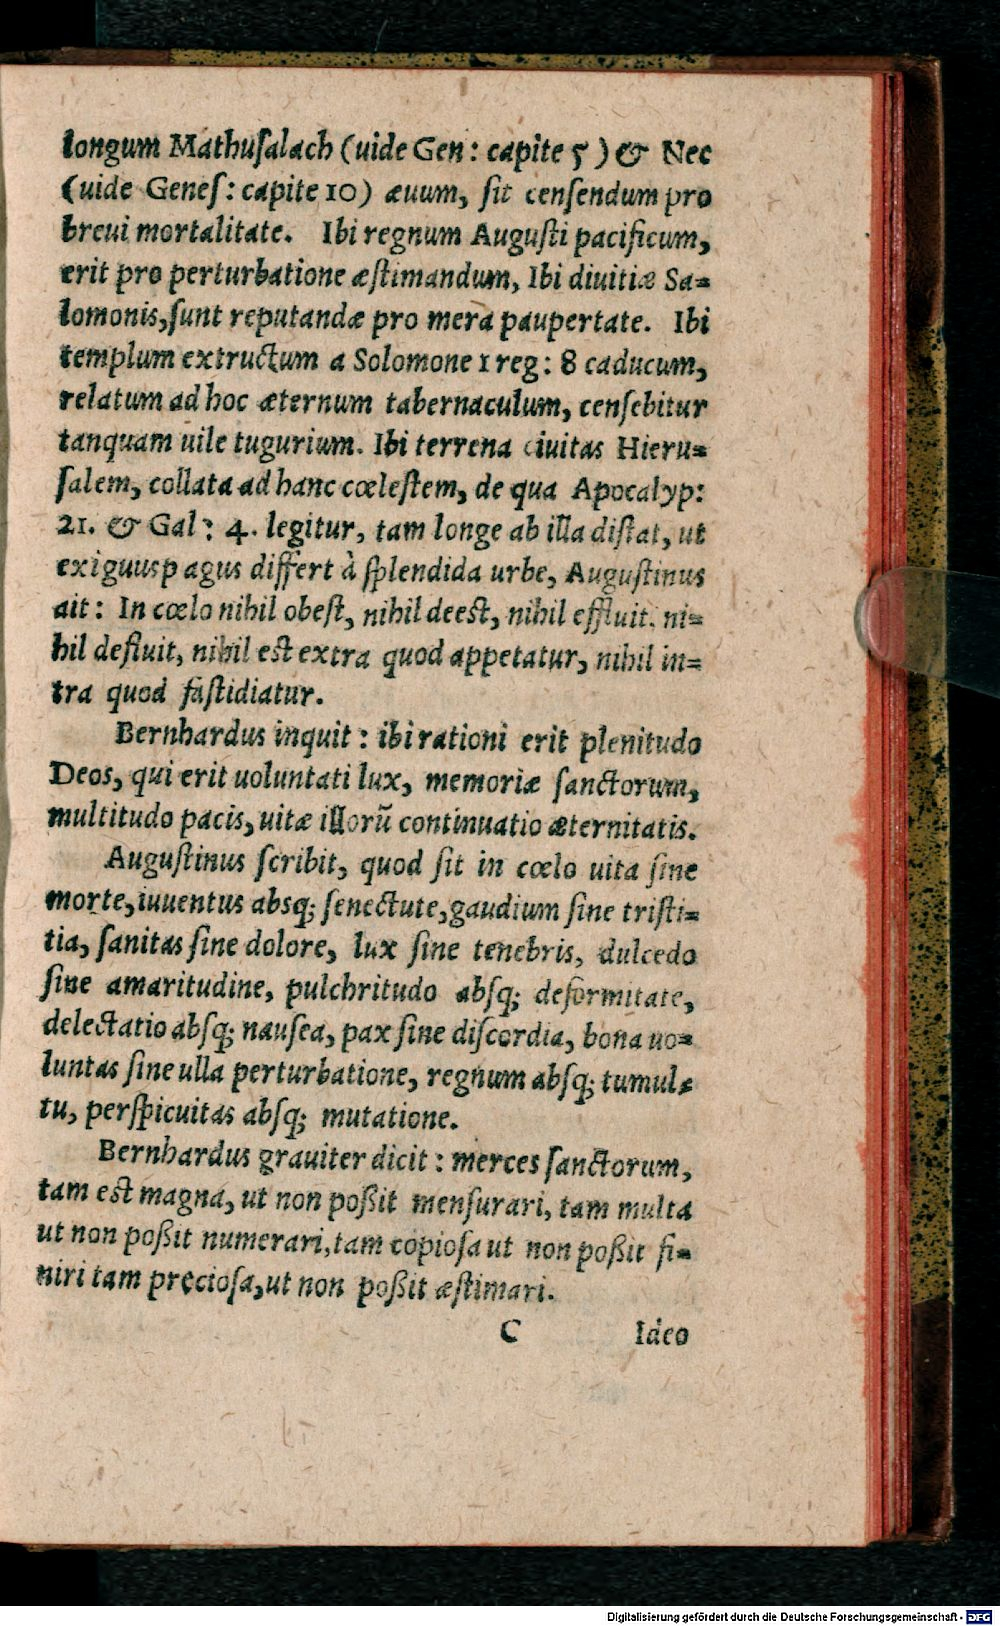 longum Mathuſalach (uide Gen: capite 5) & Nec
(uide Geneſ: capite 10) æuum, ſit cenſendum pro
breui mortalitate. Ibi regnum Auguſti pacificum,
erit pro perturbatione æſtimandum, Ibi diuitiæ Sa=
lomonis,ſunt reputandæ pro mera paupertate. Ibi
templum extructum a Solomone 1 reg: 8 caducum,
relatum ad hoc æternum tabernaculum, cenſebitur
tanquam uile tugurium. Ibi terrena ciuitas Hieru=
ſalem, collata ad hanc cœleſtem, de qua Apocalyp:
21. & Gal: 4. legitur, tam longe ab illa diſtat, ut
exiguusp agus differt à ſplendida urbe, Auguſtinus
ait: In cœlo nihil obeſt, nihil deeſt, nihil effluit. ni=
hil defluit, nihil eſt extra quod appetatur, nihil in=
tra quod faſtidiatur.
Bernhardus inquit: ibi rationi erit plenitudo
Deos, qui erit uoluntati lux, memoriæ ſanctorum,
multitudo pacis, uitæ illorũ continuatio æternitatis.
Auguſtinus ſcribit, quod ſit in cœlo uita ſine
morte, iuuentus absq; ſenectute, gaudium ſine triſti=
tia, ſanitas ſine dolore, lux ſine tenebris, dulcedo
ſine amaritudine, pulchritudo abſq; deformitate,
delectatio abſq; nauſea, pax ſine diſcordia, bona uo=
luntas ſine ulla perturbatione, regnum abſq; tumul=
tu, perſpicuitas abſq; mutatione.
Bernhardus grauiter dicit: merces ſanctorum,
tam eſt magna, ut non poßit menſurari, tam multa
ut non poßit numerari, tam copioſa ut non poßit fi=
niri tam precioſa, ut non poßit æſtimari.
C Ideo
Digitalisierung gefördert durch die Deutsche Forschungsgemeinschaft - DFG